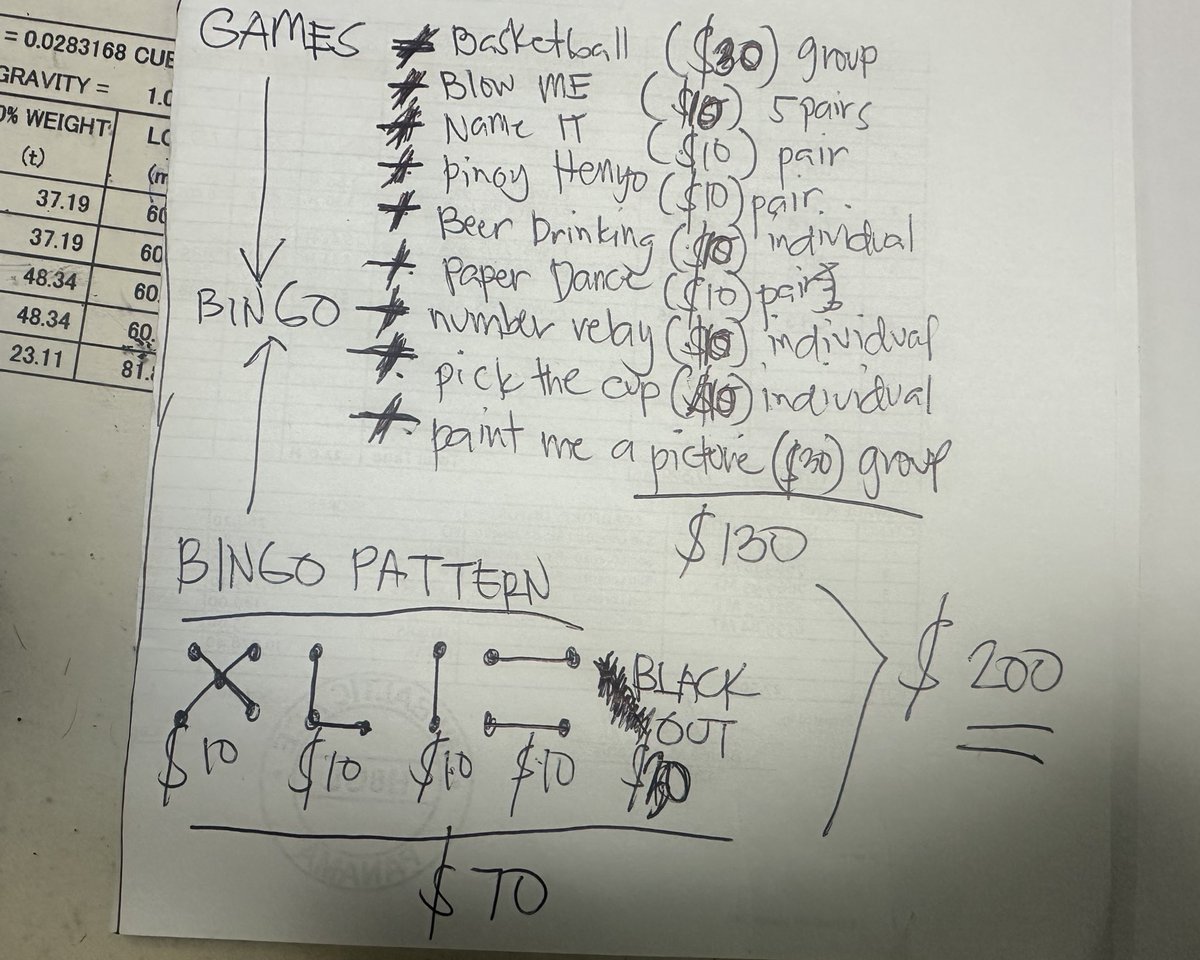 = 0.0283168 CUB
GRAVITY = 1.0
% WEIGHT
(t)
37.19 60
37.19 60
48.34 60.
48.34 60.
23.11 81.
GAMES
Basketball ($30) group
Blow ME ($10) 5 pairs
Name IT ($10) pair
pinoy Henyo ($10) pair..
Beer Drinking ($10) individual
Paper Dance ($10) pairs
BINGO
number relay ($10) individual
pick the cup ($10) individual
paint me a picture ($30) group
$130
BINGO PATTERN
BLACK
OUT
$10 $10 $10 $10 $30
$70
$200